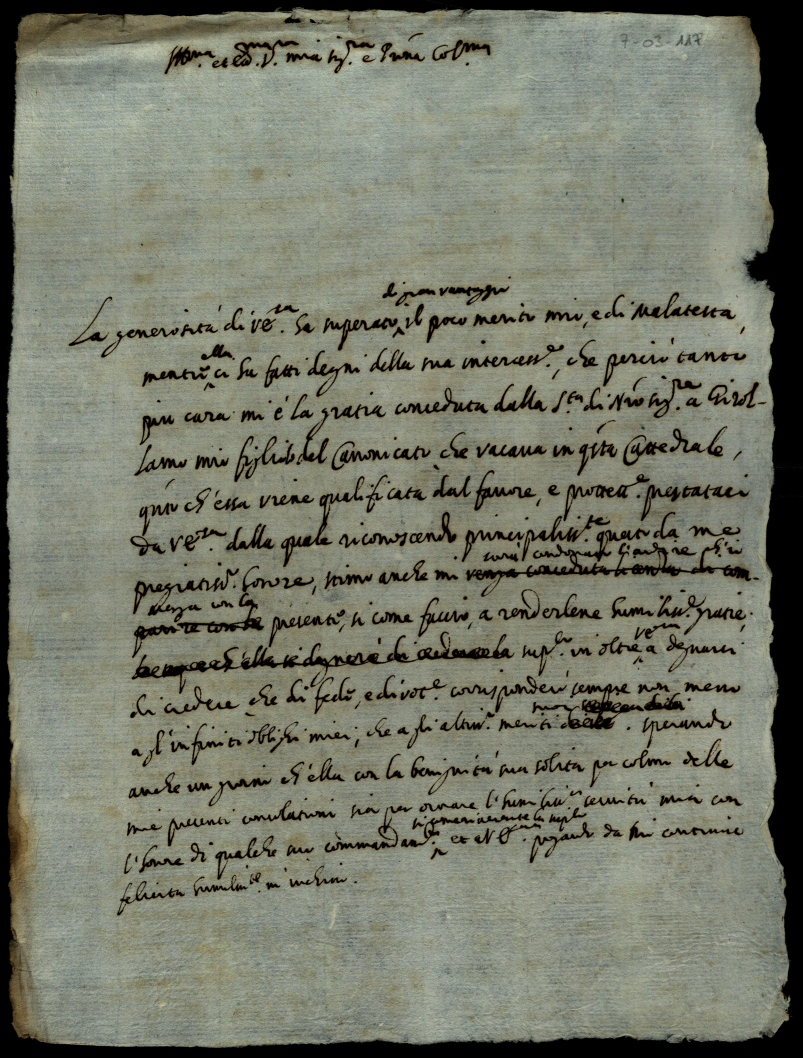 7-03-117
Ill.ma et Ecc.ma S.ra mia Sig.ra e P'rona Col.ma
di gran vantaggio
La generosità di V.E.za ha superato il poco merito mio, e di Malatesta,
mentre ella ci ha fatti degni della sua intercess.e, che perciò tanto
più cara mi é la gratia conceduta dalla S.tà di N'ro Sig.re a Girol-
lamo mio figlio del Canonicato che vacava in q'sta Cattedrale,
q'nto ch'essa viene qualificata dal favore, e protett.e prestataci
da V.E.za dalla quale riconoscendo principaliss.te questo da me
pregiatiss.o honore, stimo anche mi venga conceduta licenza di com-
parire con la presente, si come faccio, a renderlene humiliss.e gratie;
supp.co in oltre V.E.za a degnarsi
di credere che di fede, e di voc.e corrisponderò sempre non meno
a gl'infiniti oblighi miei, che a gli altiss.i meriti suoi. sperando
anche un giorno ch'ella con la benignità sua solita per colmo delle
mie presenti consolationi sia per ornare l'humiliss.a servitù mia con
l'honore di qualche suo commandam.to et a V.E.za pregando da Dio continue
felicità humilm.te m'inchino.